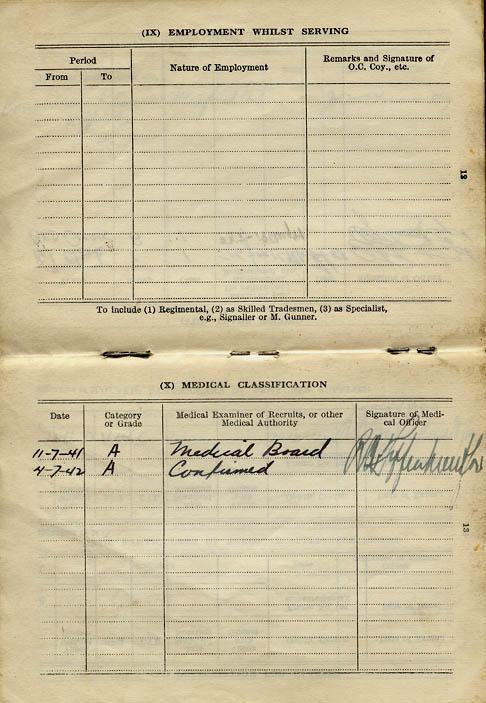 (IX) EMPLOYMENT WHILST SERVING
Period
From To
Nature of Employment
Remarks and Signature of
O.C. Coy., etc.
12
To include (1) Regimental, (2) as Skilled Tradesmen, (3) as Specialist,
e.g., Signaller or M. Gunner.
(X) MEDICAL CLASSIFICATION
Date
Category
or Grade
Medical Examiner of Recruits, or other
Medical Authority
Signature of Medi-
cal Officer
11-7-41 A Medical Board
4-7-42 A Confirmed
13